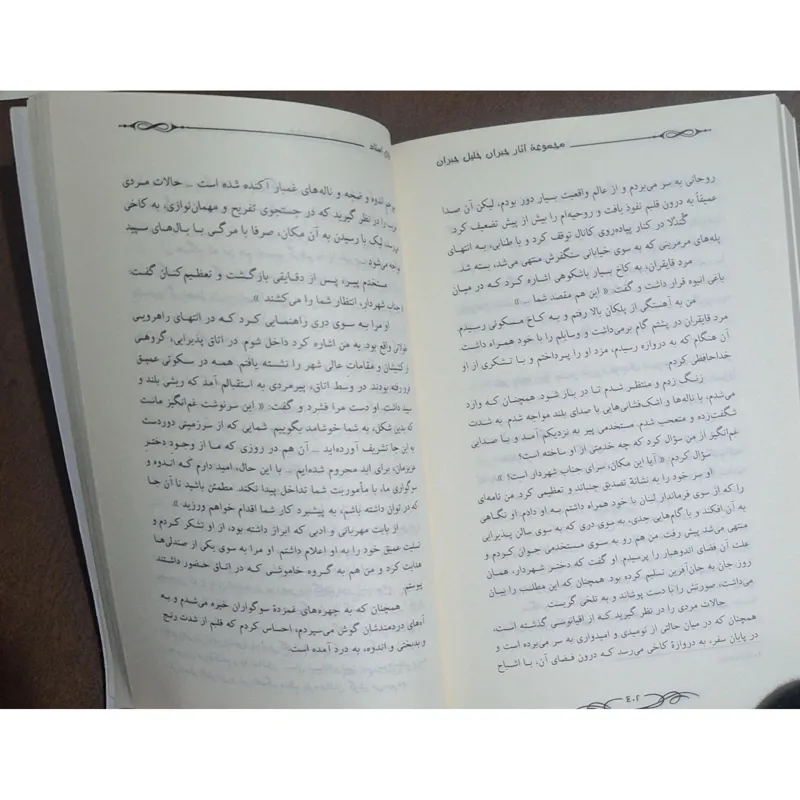 مجموعهٔ آثار جبران خلیل جبران
روحانی به سر می‌بردم و از عالم واقعیت بسیار دور بودم، لیکن آن صدا
عمیقاً به درون قلبم نفوذ یافت و روحیه‌ام را بیش از پیش تضعیف کرد.
گُندُلا در کنار پیاده‌روی کانال توقف کرد و با طنابی، به انتهای
پله‌های مرمرینی که به سوی خیابانی سنگفرش منتهی می‌شد، بسته شد.
مرد قایقران، به کاخ بسیار باشکوهی اشاره کرد که در میان
باغی انبوه قرار داشت و گفت: « این هم مقصد شما ... »
من به آهستگی از پلکان بالا رفتم و به کاخ مسکونی رسیدم.
مرد قایقران در پشتم گام برمی‌داشت و وسایلم را با خود همراه داشت.
آن هنگام که به دروازه رسیدم، مزد او را پرداختم و با تشکری از او
خداحافظی کردم.
زنگ زدم و منتظر شدم تا در باز شود. همچنان که وارد
می‌شدم، با ناله‌ها و اشک‌فشانی‌هایی با صدای بلند مواجه شدم. به شدت
شگفت‌زده و متعجب شدم. مستخدمی پیر به نزدیکم آمد و با صدایی
غم‌انگیز از من سؤال کرد که چه خدمتی از او ساخته است؟
سؤال کردم: « آیا این مکان، سرای جناب شهردار است؟ »
او سر خود را به نشانهٔ تصدیق جنباند و تعظیمی کرد. من نامه‌ای
را که از سوی فرماندار لبنان با خود همراه داشتم به او دادم. او نگاهی
به آن افکند و با گام‌هایی جدی، به سوی دری که به سوی سالن پذیرایی
منتهی می‌شد پیش رفت. من هم رو به سوی مستخدمی جوان کردم و
علت آن فضای اندوهبار را پرسیدم. او گفت که دختر شهردار، همان
روز جان به جان‌آفرین تسلیم کرده بود. همچنان که این مطلب را بیان
می‌داشت، صورتش را با دست پوشاند و به تلخی گریست.
حالات مردی را در نظر گیرید که از اقیانوسی گذشته است،
همچنان که در میان حالتی از نومیدی و امیدواری به سر می‌برده است و
در پایان سفر، به دروازهٔ کاخی می‌رسد که درون فضای آن، با اشباح
۲۰۴
استاد
اندوه و ضجه و ناله‌های غمبار آکنده شده است ... حالات مردی
را در نظر گیرید که در جستجوی تفریح و مهمان‌نوازی، به کاخی
لیک با رسیدن به آن مکان، صرفا با مرگی با بال‌های سپید
می‌شود
مستخدم پیر، پس از دقایقی بازگشت و تعظیم‌کنان گفت:
جناب شهردار، انتظار شما را می‌کشند ».
او مرا به سوی دری راهنمایی کرد که در انتهای راهرویی
طولانی واقع بود. به من اشاره کرد داخل شوم. در اتاق پذیرایی، گروهی
از کشیشان و مقامات عالی شهر را نشسته یافتم. همه در سکوتی عمیق
فرو رفته بودند. در وسط اتاق، پیرمردی به استقبالم آمد که ریشی بلند و
سپید داشت. او دست مرا فشرد و گفت: « این سرنوشت غم‌انگیز ماست
که بدین شکل، به شما خوشامد بگوییم. شمایی که از سرزمینی دوردست
به این جا تشریف آورده‌اید ... آن هم در روزی که ما از وجودِ دخترِ
عزیزمان، برای ابد محروم شده‌ایم ... با این حال، امید دارم که اندوه و
سوگواری ما، با مأموریت شما تداخل پیدا نکند. مطمئن باشید تا آن جا
که در توان داشته باشم، به پیشبرد کار شما اقدام خواهم ورزید ».
از بابت مهربانی و ادبی که ابراز داشته بود، از او تشکر کردم و
تسلیت عمیق خود را به او اعلام داشتم. او مرا به سوی یکی از صندلی‌ها
هدایت کرد و من هم به گروه خاموشی که در اتاق حضور داشتند
پیوستم.
همچنان که به چهره‌های غمزدهٔ سوگواران خیره می‌شدم و به
آه‌های دردمندشان گوش می‌سپردم، احساس کردم که قلبم از شدت رنج
و بدبختی و اندوه، به درد آمده است.